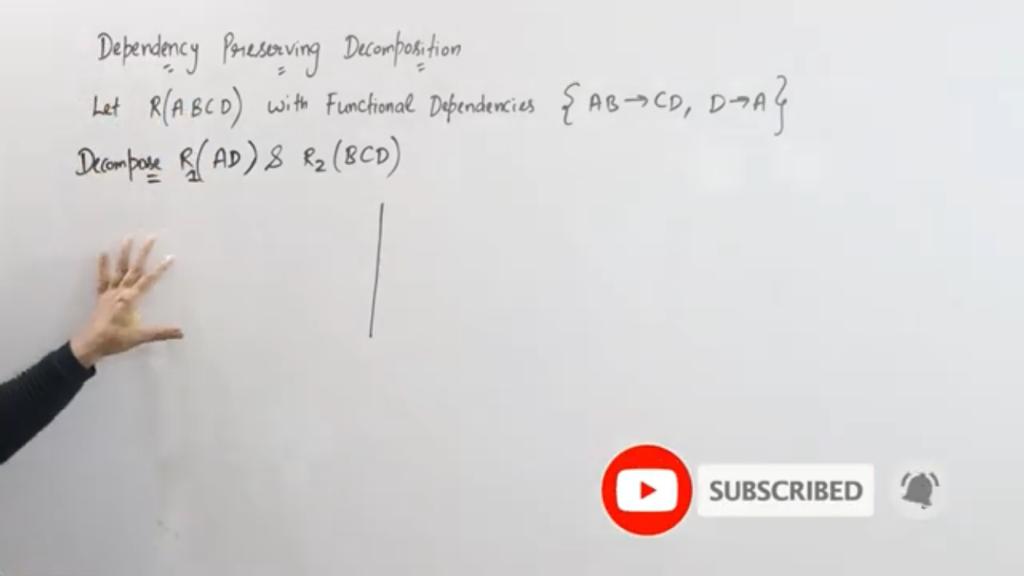 Dependency Preserving Decomposition
Let R(ABCD) with Functional Dependencies {AB→CD, D→A}
Decompose R1(AD) & R2(BCD)
SUBSCRIBED